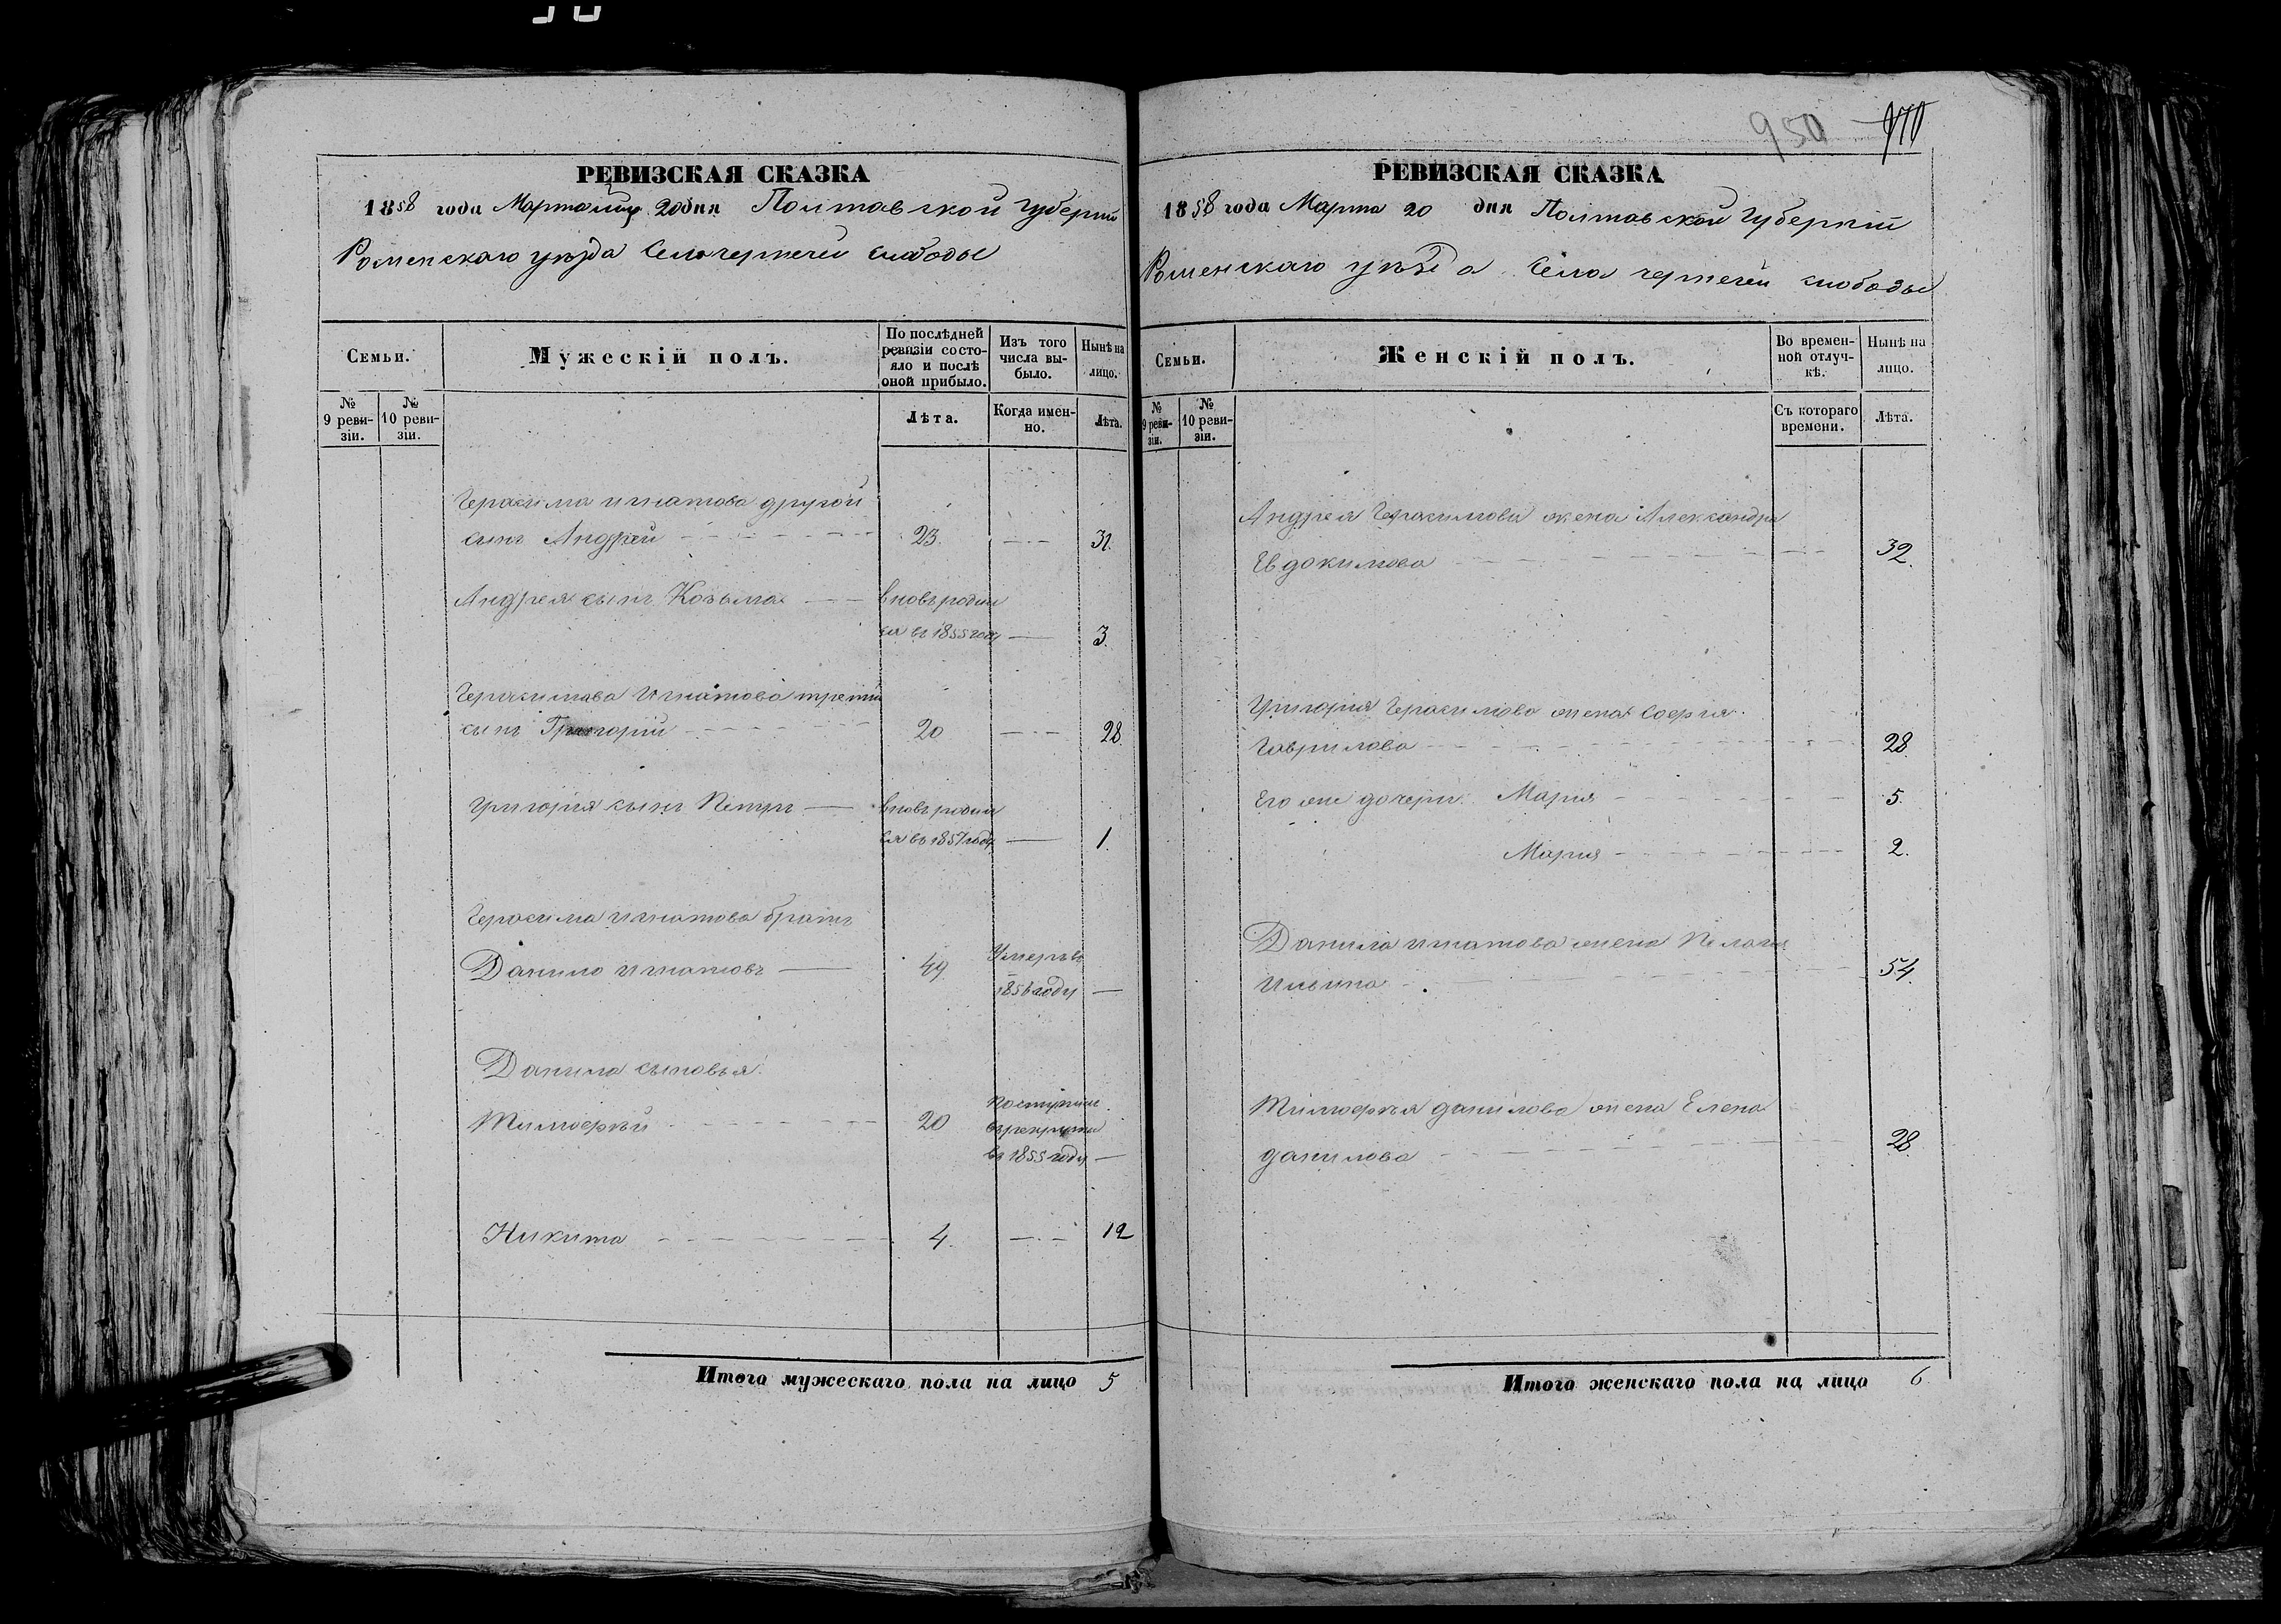 950 970
РЕВИЗСКАЯ СКАЗКА
1858 года Марта мца 20 дня Полтавской Губерніи
Роменскаго уѣзда Села чернечей слободы
Семьи.
Мужескій полъ.
По послѣдней ревизіи состояло и послѣ оной прибыло.
Изъ того числа выбыло.
Нынѣ на лицо.
№ 9 ревизіи.
№ 10 ревизіи.
Лѣта.
Когда именно.
Лѣта.
Герасима игнатова другой
сынъ Андрей 23. 31.
Андрея сынъ Козьма вновь родил
ся въ 1855 году 3.
Герасимова Игнатова третій
сынъ Григорій 20 28.
Григорія сынъ Петръ вновь родил
ся въ 1857 году 1.
Герасима игнатова братъ
Данило игнатовъ 49. Умеръ въ
1856 году
Данила сыновья:
Тимоѳѣй 20 поступилъ
въ рекруты
въ 1855 году
Никита 4. 12
Итого мужескаго пола на лицо 5
РЕВИЗСКАЯ СКАЗКА
1858 года Марта 20 дня Полтавской Губерніи
Роменскаго уѣзда Села чернечей слободы
Семьи.
Женскій полъ.
Во временной отлучкѣ.
Нынѣ на лицо.
№ 9 ревизіи.
№ 10 ревизіи.
Съ котораго времени.
Лѣта.
Андрея Герасимова жена Александра
Евдокимова 32.
Григорія Герасимова жена Софія
Гаврилова 28.
Его же дочери: Марія 5.
Марія 2.
Данила игнатова жена Пелагія
Ильина 54.
Тимоѳея данилова жена Елена
данилова 28.
Итого женскаго пола на лицо 6.